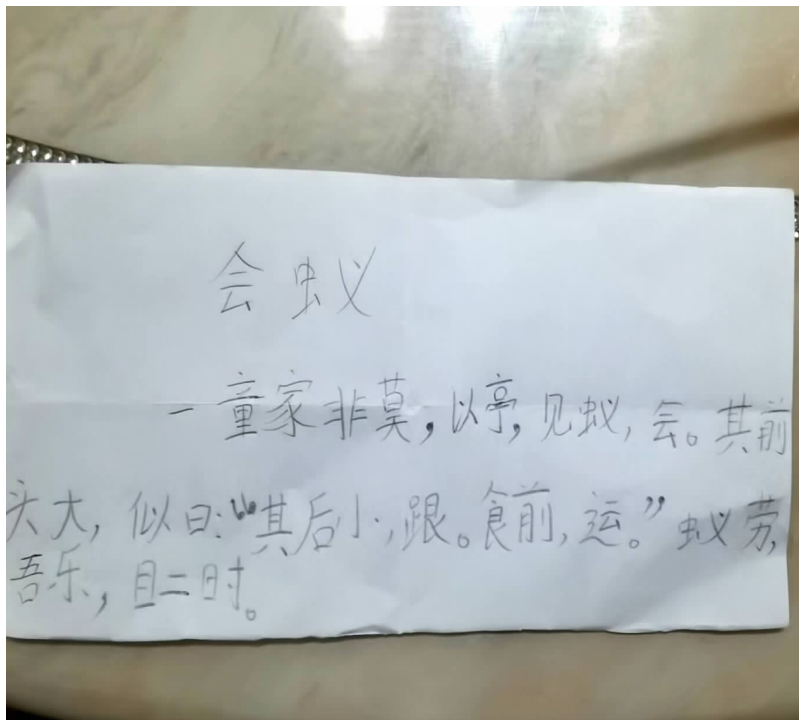 会蚁
一童家非莫，以亭，见蚁，会。其前
头大，似曰：“其后小，跟。食前，运。”蚁劳，
吾乐，且二时。